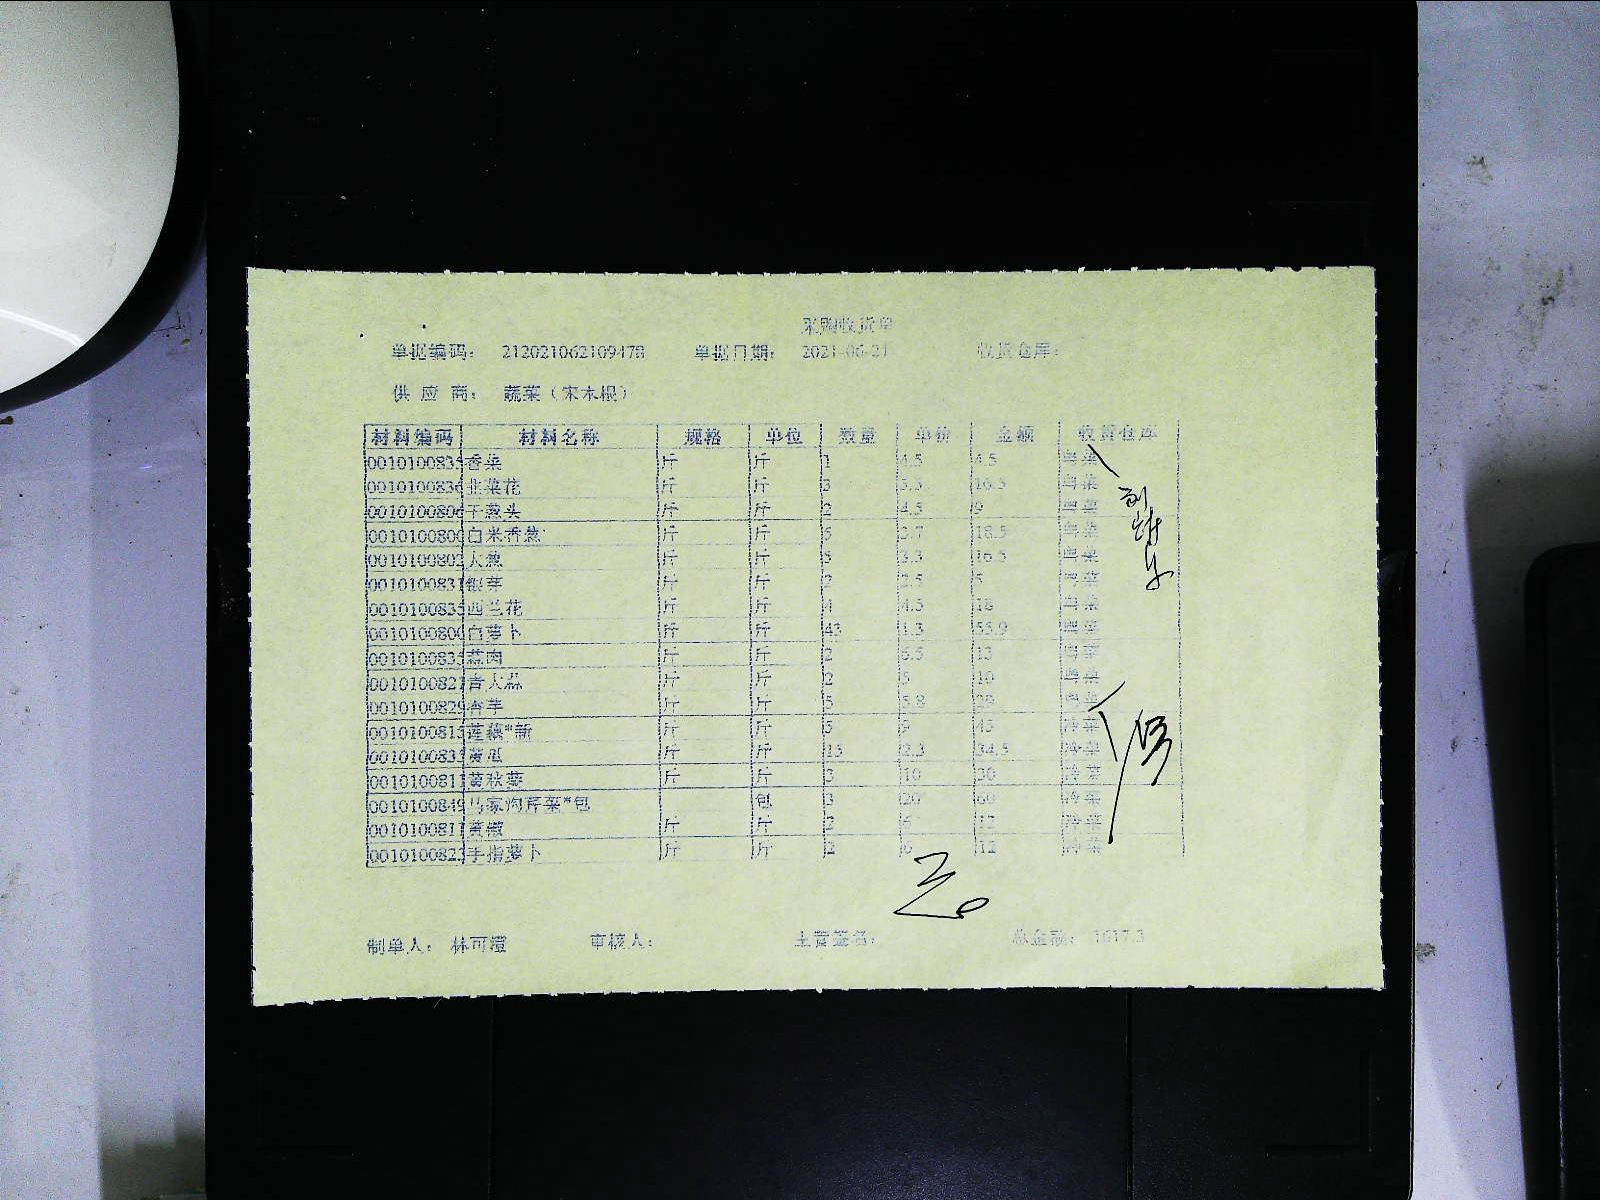 采购收货单
单据编码: 212021062109478 单据日期: 2021-06-21 收货仓库:
供 应 商: 蔬菜（宋木根）
材料编码 材料名称 规格 单位 数量 单价 金额 收货仓库
0010100835 香菜 斤 斤 1 4.5 4.5 粤菜
0010100836 韭菜花 斤 斤 3 16.5 粤菜
0010100806 干葱头 斤 斤 2 4.5 9 粤菜
0010100800 白米香葱 斤 斤 5 3.7 18.5 粤菜
0010100802 大葱 斤 斤 5 3.3 16.5 粤菜
0010100831 银芽 斤 斤 2 2.5 5 粤菜
0010100835 西兰花 斤 斤 4 4.5 18 粤菜
0010100800 白萝卜 斤 斤 43 1.3 55.9 粤菜
0010100835 蒜肉 斤 斤 2 6.5 13 粤菜
0010100827 青大蒜 斤 斤 2 5 10 粤菜
0010100829 香芋 斤 斤 5 5.8 29 粤菜
0010100815 莲藕*新 斤 斤 5 9 45 冷菜
0010100835 黄瓜 斤 斤 15 2.3 34.5 冷菜
0010100811 黄秋葵 斤 斤 3 10 30 冷菜
0010100849 马家沟芹菜*包 包 3 20 60 冷菜
0010100811 斤 斤 2 6 12 冷菜
0010100823 手指萝卜 斤 斤 2 6 12 冷菜
制单人: 林可澄 审核人: 主管签名: 总金额: 1617.3